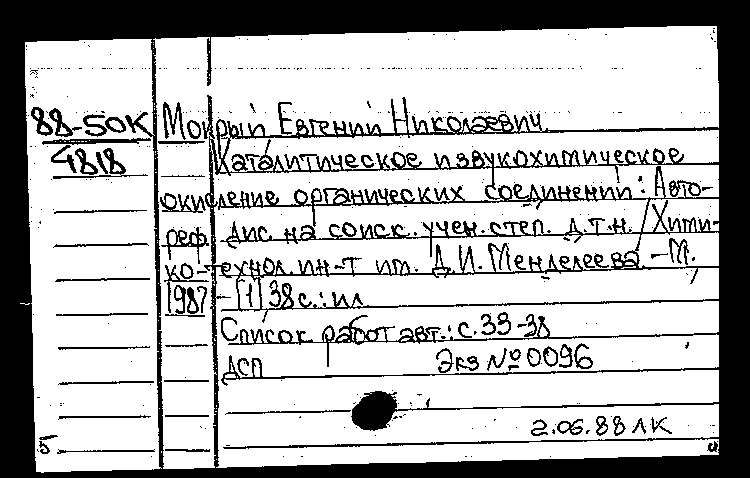 88-50К Мокрый Евгений Николаевич
4818 Каталитическое и звукохимическое
окисление органических соединений: Авто-
реф. дис. на соиск. учен. степ. д.т.н. / Хими-
ко-технол. ин-т им. Д.И. Менделеева. - М.
1987 - [1] 38 с.: ил.
Список работ авт.: с. 33-38
ДСП Экз № 0096
2.06.88 ЛК
5.